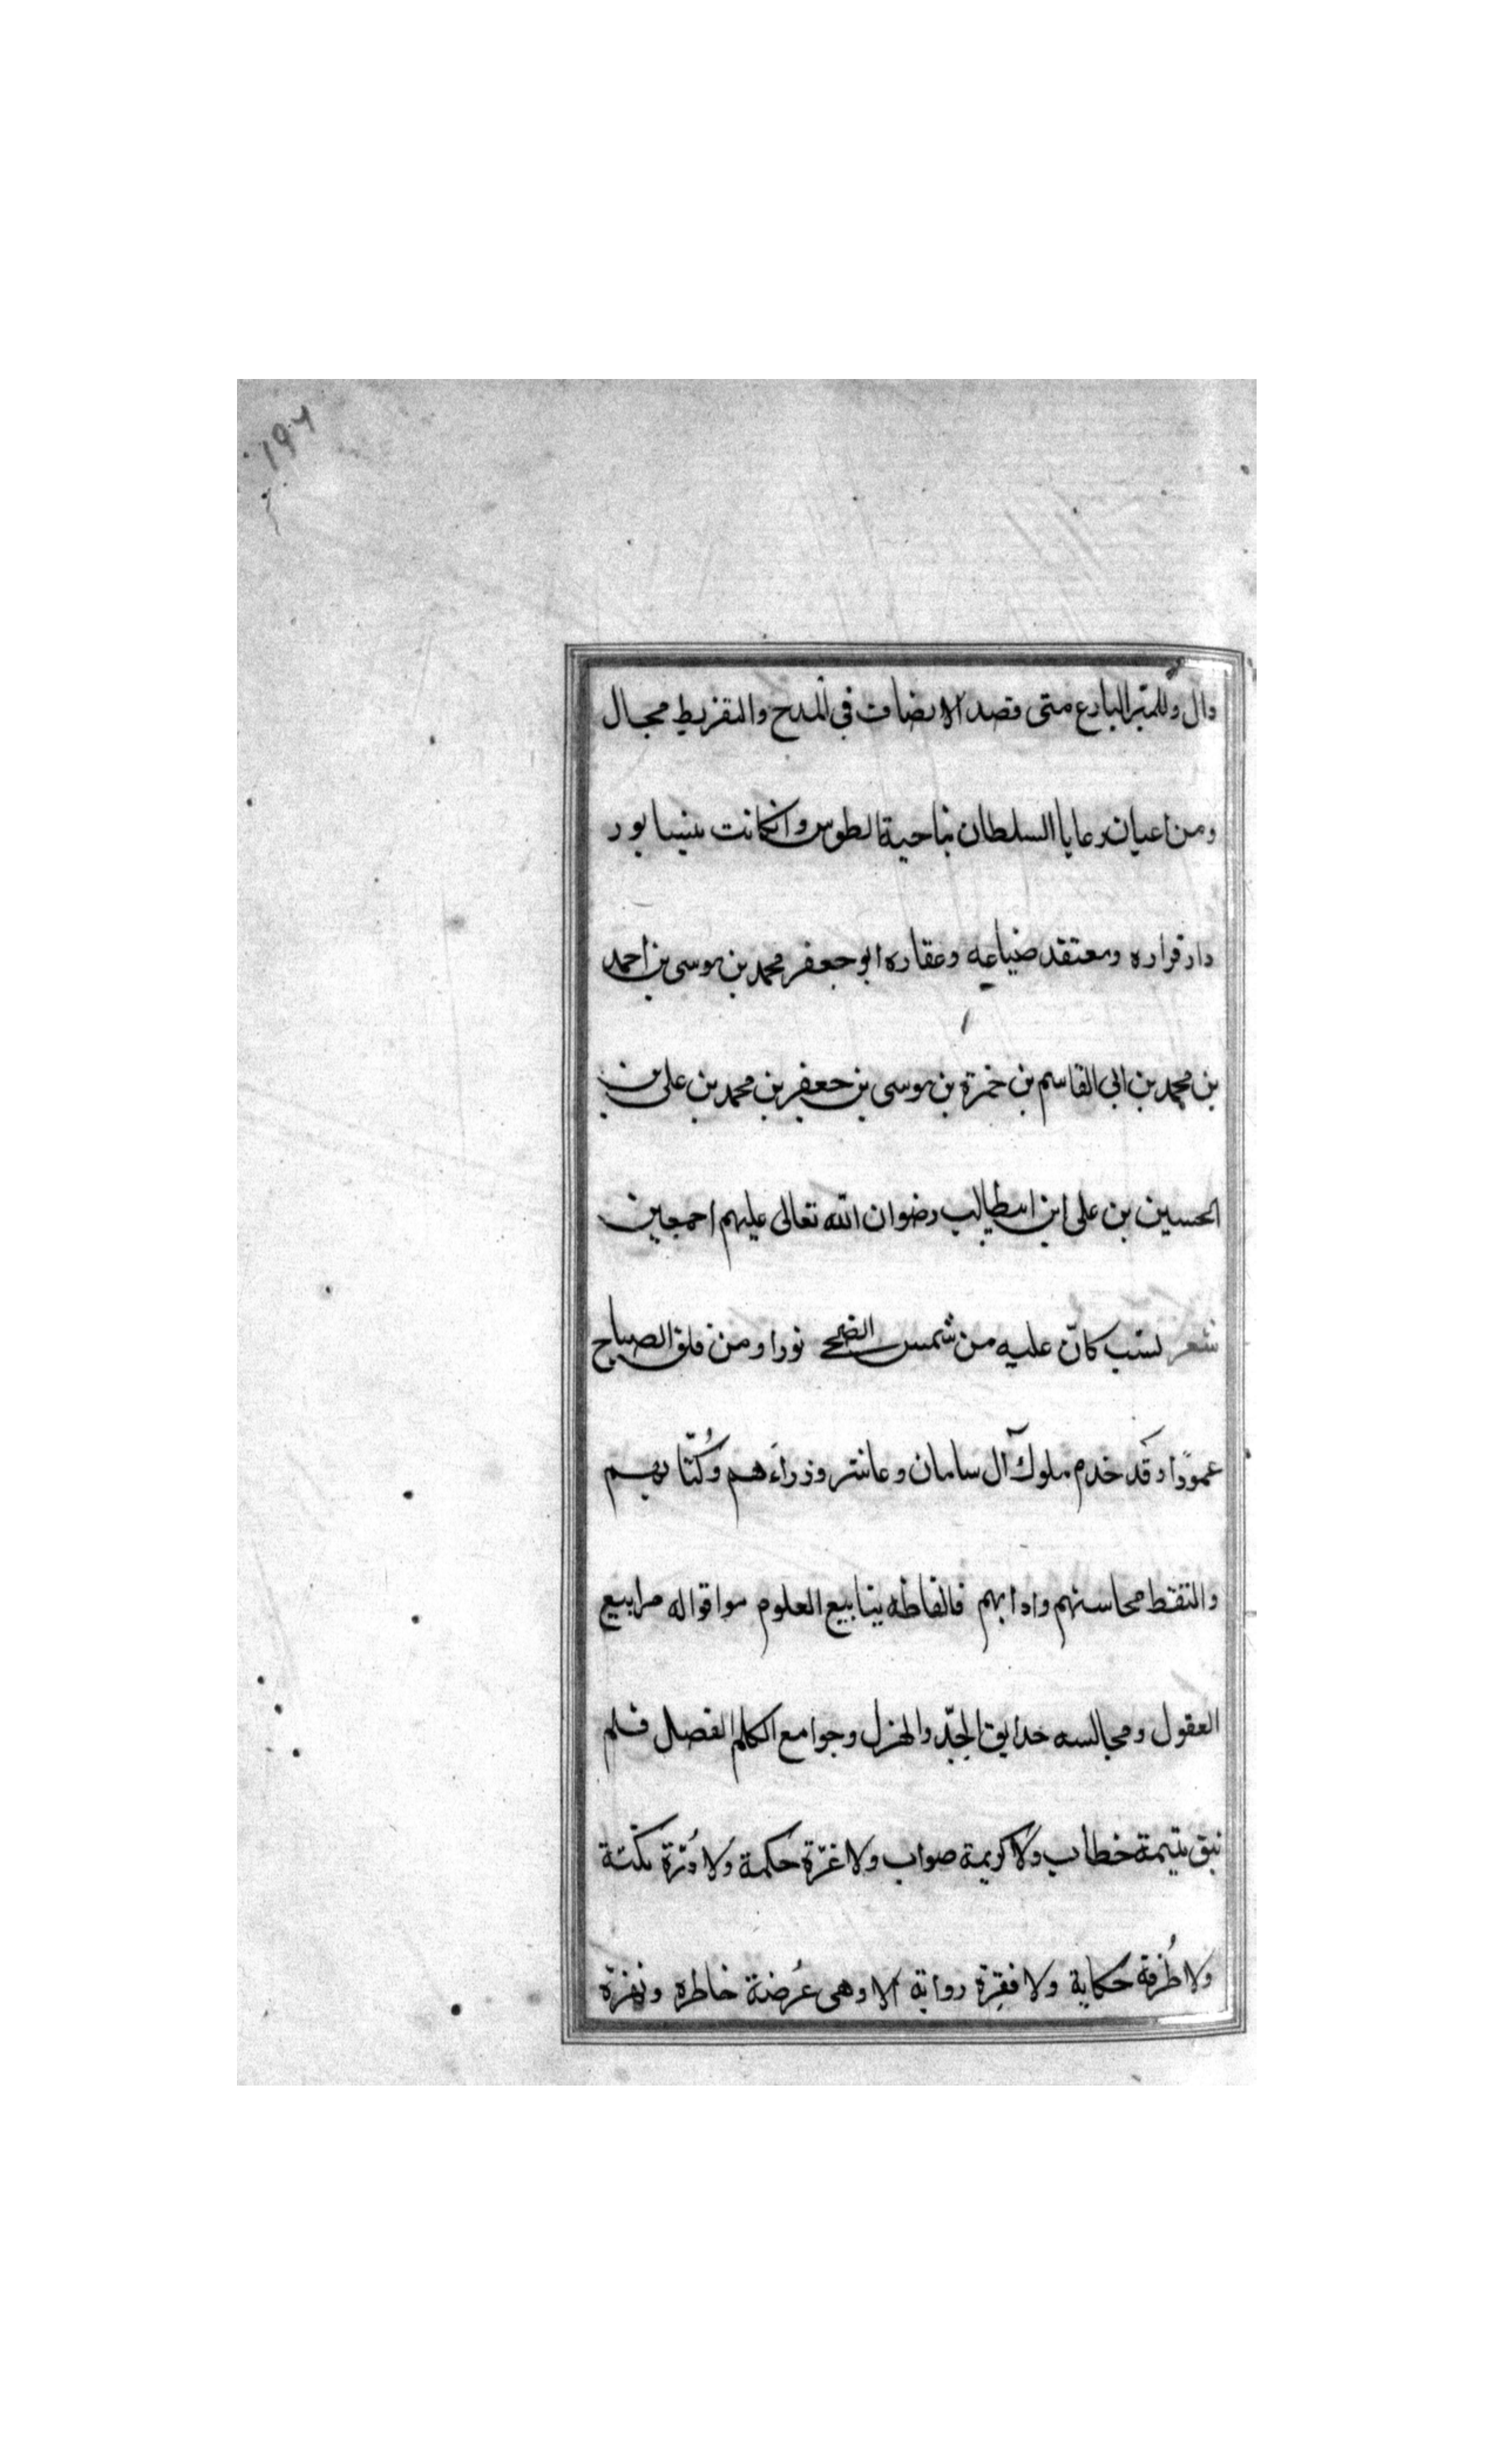 ١٩٦
وال وللمتبر البارع متى قصد الانصاف فى المدح والتقريط مجال
ومن اعيان رعايا السلطان بناحية الطوس وانكانت بنيسابور
دار قراره ومعتقد ضياعه وعقاره ابو جعفر محمد بن موسى بن احمد
بن محمد بن ابى القاسم بن حمزة بن موسى بن جعفر بن محمد بن على بن
الحسين بن على ابن ابيطالب رضوان الله تعالى عليهم اجمعين
شعر نسب كانّ عليه من شمس الضحى نورا ومن فلق الصباح
عمودًا وقَد خدم ملوك آل سامان وعاشر وزراءَهم وكُتّابهم
والتقط محاسنهم وادابهم فالفاظه ينابيع العلوم واقواله مرابيع
العقول ومجالسه حدايق الجدّ والهزل وجوامع الكلم الفصل فلم
تبق يتيمة خطاب ولا كريمة صواب ولا غرّة حكمة ولا دُرّة نكتة
ولا طُرفة حكاية ولا فقِرة رواية الا وهى عُرضة خاطره ونهزة